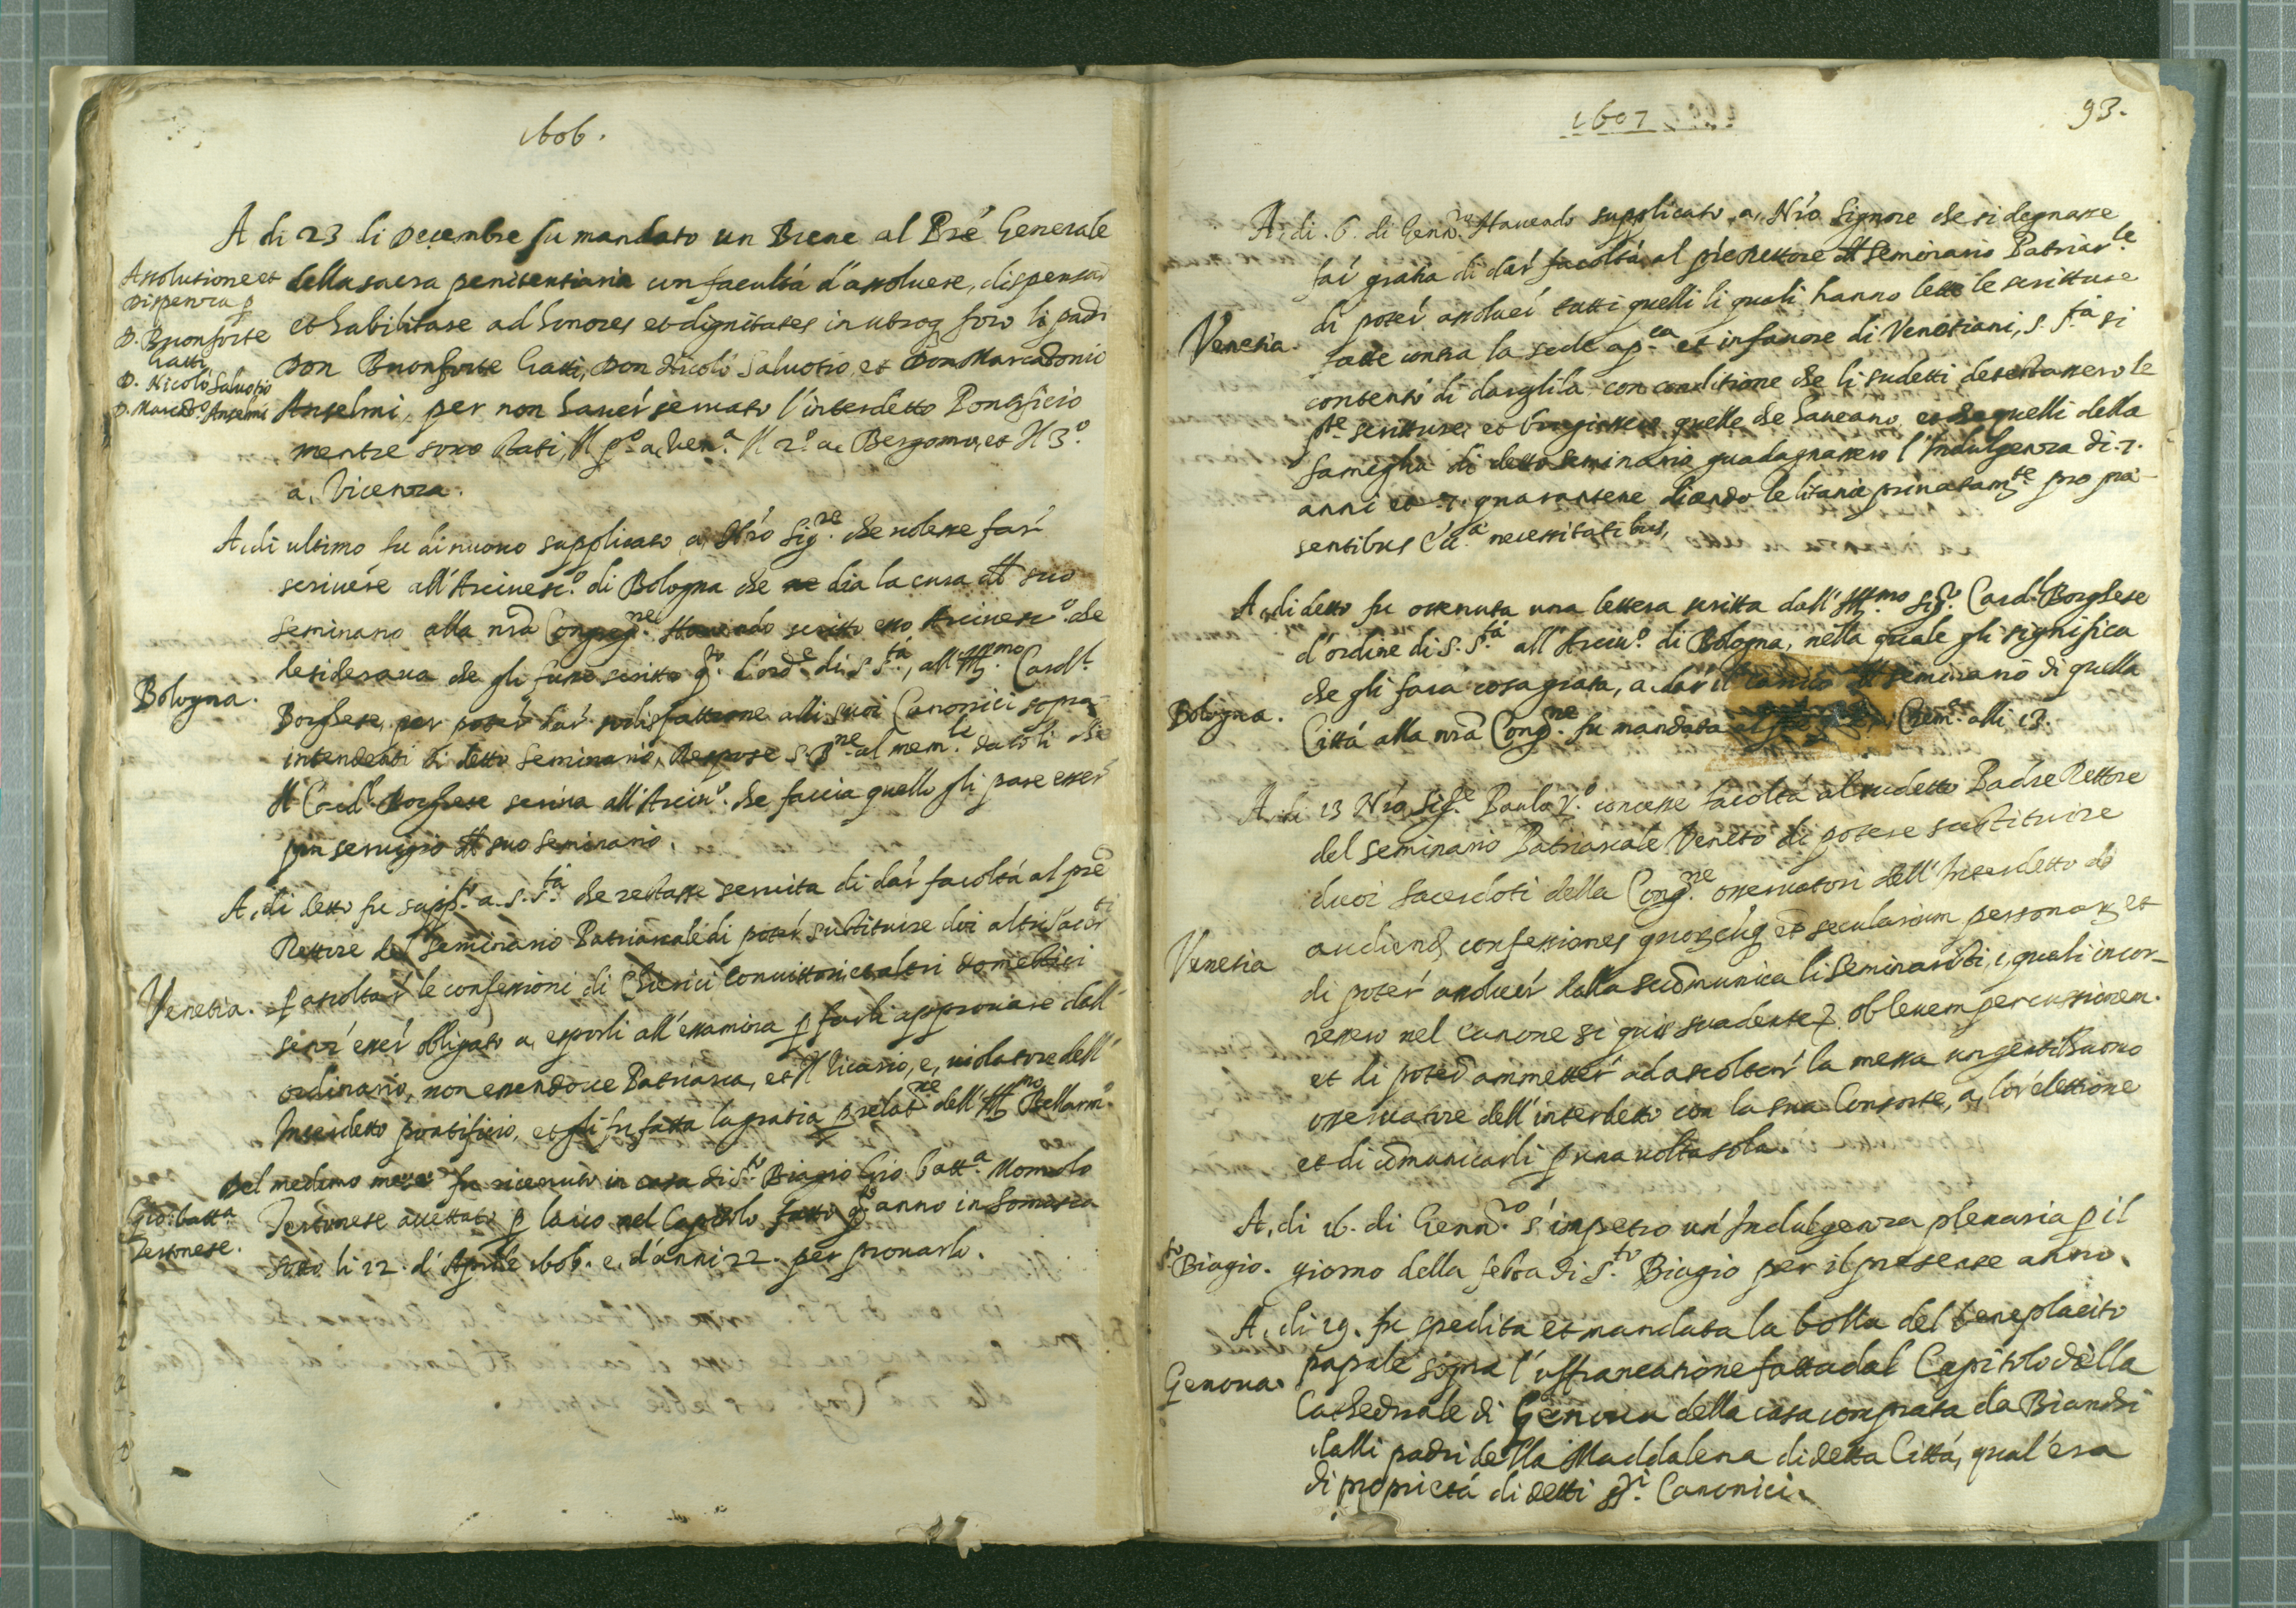 1606.
A di 23 di Decembre fu mandato un Breve al Pre Generale
Assolutione et
Dispenza p
D. Buonforte
Gatti
D. Nicolò Salvotio
D. Marc'Ant.o Anselmi
della sacra penitentiaria con facultà d'assolvere, dispensar
et habilitare ad honores et dignitates in utroq foro li padri
Don Buonforte Gatti, Don Nicolò Salvotio, et Don Marcadonio
Anselmi, per non haver servato l'interdetto Pontificio
mentre sono stati, Il p.o a, Ven.a Il 2.o a, Bergomo, et Il 3.o
a, Vicenza.
A, di ultimo fu di nuovo supplicato a, N'ro Sig.re che volesse far
scrivere all'Arcivesc.o di Bologna che ne dia la cura del suo
seminario alla nrã Congreg.ne Havendo scritto esso Arcivesc.o che
desiderava che gli fusse scritto q.to d'ord.e di S. S.tà, all'Ill.mo Card.l
Bologna.
Borghese, per poter dar sodisfattione alli suoi Canonici sopra-
intendenti di detto Seminario, Respose S. B.ne al mem.le datoli che
Il Card.l Borghese scriva all'Arciv.o che faccia quello gli pare esser
più servigio del suo seminario.
A, di detto fu supp.to a. S. S.tà che restasse servita di dar facoltà al prẽ
Rettore del Seminario Patriarcale di poter substituire doi altri Sacerd.ti
Venetia.
p ascoltar le confessioni di Chierici convittori et altri domestici
senz'esser obligato a, esporli all'essamina p farli approvare dall'
ordinario, non essendove Patriarca, et Il Vicario, e, violatore dell'
Interdetto pontificio, et gli fu fatta la gratia p relat.ne dell'Ill.mo Bellarm.o
Del medimo mese fu ricevuto in casa di S.to Biagio Gio. Batt.a Momolo
Gio: batt.a
Tortonese.
Tortonese accettato p laico nel Capitolo fatto q.to anno in Somasca
sotto li 22. d'Aprile 1606. e, d'anni 22. per provarlo.
1607
93.
A, di. 6. di Genn.ro Havendo supplicato, a, N'ro Signore che si degnasse
far gratia di dar facoltà al pre Rettore del Seminario Patriar.le
di poter assolver tutti quelli li quali hanno lette le scritture
Venetia.
fatte contra la sede ap.ca et in favore di Venetiani, S. S.tà si
contentò di dargli la con conditione che li sudetti detestassero le
p.te scritture, et bruggiassero quelle che haveano, et che quelli della
fameglia di detto seminario guadagnassero l'Indulgenza di. 7.
anni et. 7. quarantene dicendo le litanie privatam.te pro præ-
sentibus necessitatibus,
A, di detto fu ottenuta una lettera scritta dall'Ill.mo Sig.r Card.l Borghese
d'ordine di S. S.tà all'Arciv.o di Bologna, nella quale gli significa
che gli farà cosa grata, a, dar il carico del seminario di quella
Bologna.
Città alla nrã Cong.ne fu mandata al Crem.a alli 13.
A, di 13 N'ro Sig.re Paulo V.o concesse facoltà al sudetto Padre Rettore
del seminario Patriarcale Veneto di potere substituire
duoi Sacerdoti della Cong.ne osservatori dell'Interdetto ad
audiend confessiones quorũcuq et secularium personar, et
Venetia
di poter assolver dalla scõmunica li Seminaristi, i, quali incor-
ressero nel canone si quis suadente, ob levem percussionem.
et di poter ammetter ad ascoltar la messa un gentilhuomo
osservatore dell'interdetto con la sua Consorte, a, lor elettione
et di cõmunicarli p una volta sola.
A, di 16. di Genn.ro s'impetrò un'Indulgenza plenaria p il
S.to Biagio.
giorno della festa di S.to Biagio per il presente anno.
A, di 29. fu spedita et mandata la bolla del beneplacito
papale sopra l'affrancatione fatta dal Capitolo della
Genova.
Cathedrale di Genova della casa comprata da Bianchi
dalli padri della Maddalena di detta Città, qual'era
di proprietà di detti SS.ri Canonici.